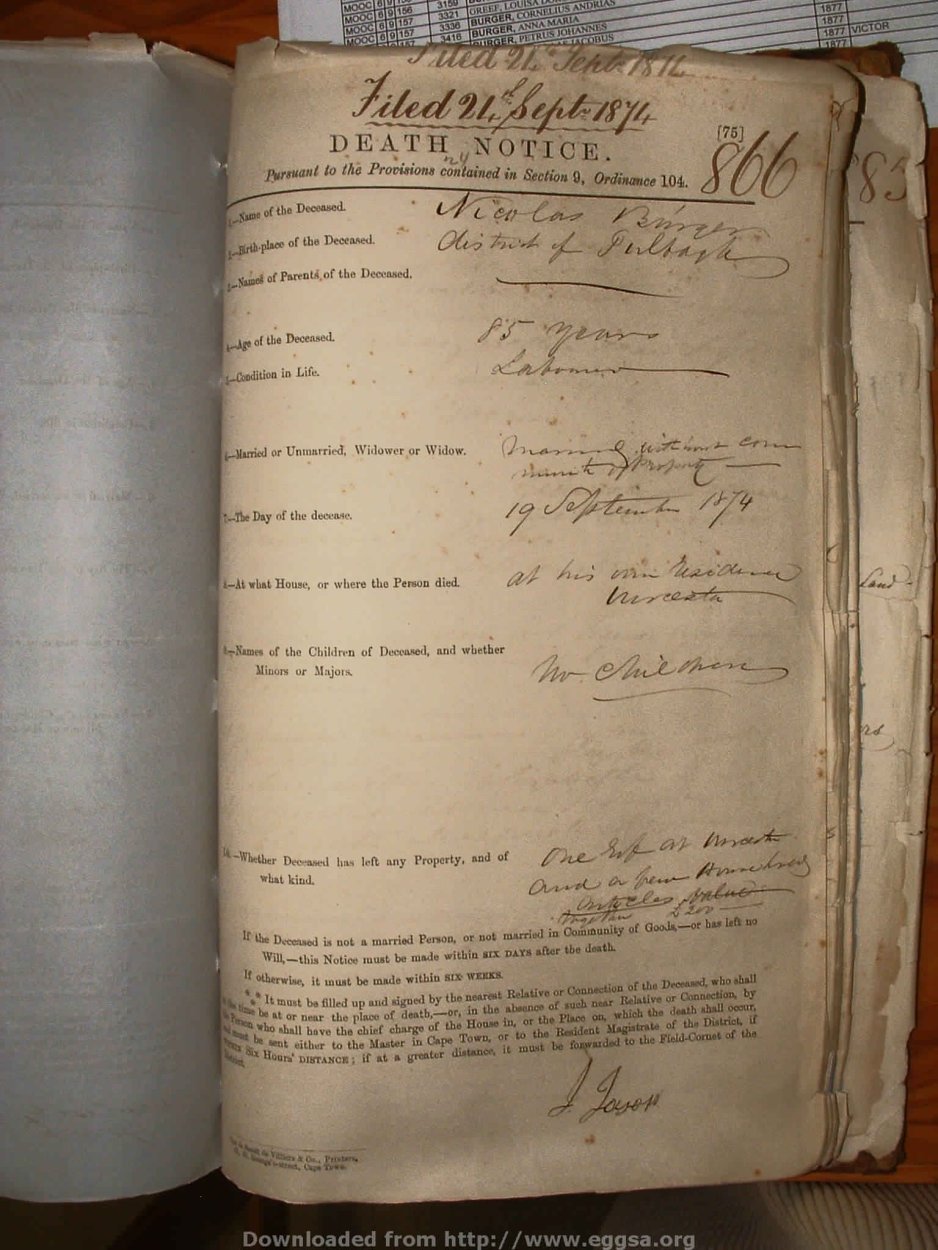 MOOC 6 9 156 3159 GREEF, LOUISA
MOOC 6 9 156 3321 BURGER, CORNELIUS ANDRIAS 1877
MOOC 6 9 157 3336 BURGER, ANNA MARIA 1877
MOOC 6 9 157 3416 BURGER, PETRUS JOHANNES 1877 VICTOR
JACOBUS
Filed 21 Sept 1874
Filed 21st Sept 1874
DEATH NOTICE. [75] 866
Pursuant to the Provisions contained in Section 9, Ordinance 104.
1.—Name of the Deceased. Nicolas Burger
2.—Birth-place of the Deceased. district of Tulbagh
3.—Names of Parents of the Deceased.
4.—Age of the Deceased. 85 years
5.—Condition in Life. Labourer
6.—Married or Unmarried, Widower or Widow. Married without com
munity of Property
7.—The Day of the decease. 19 September 1874
8.—At what House, or where the Person died. at his own residence
Worcester
9.—Names of the Children of Deceased, and whether
Minors or Majors. No Children
10.—Whether Deceased has left any Property, and of
what kind. One Erf at Worcester
and a few Household
articles value
together £200
If the Deceased is not a married Person, or not married in Community of Goods,—or has left no
Will,—this Notice must be made within SIX DAYS after the death.
If otherwise, it must be made within SIX WEEKS.
*** It must be filled up and signed by the nearest Relative or Connection of the Deceased, who shall
at the time be at or near the place of death,—or, in the absence of such near Relative or Connection, by
the Person who shall have the chief charge of the House in, or the Place on, which the death shall occur,
and must be sent either to the Master in Cape Town, or to the Resident Magistrate of the District, if
within SIX HOURS' DISTANCE; if at a greater distance, it must be forwarded to the Field-Cornet of the
District.
de Villiers & Co., Printers,
George's-street, Cape Town.
Land
Downloaded from http://www.eggsa.org